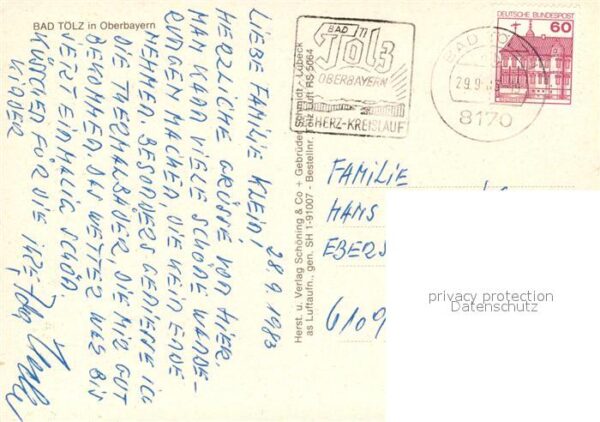 BAD TÖLZ in Oberbayern
28.9.1983
LIEBE FAMILIE KLEIN!
HERZLICHE GRÜSSE VON HIER.
MAN KANN VIELE SCHÖNE WANDE-
RUNGEN MACHEN, DIE KEIN ENDE
NEHMEN. BESONDERS GENIEßE ICH
DIE THERMALBÄDER DIE MIR GUT
BEKOMMEN. DAS WETTER WAR BIS
JETZT EINMALIG SCHÖN.
KÜSSCHEN FÜR DIE
KINDER
IHRE
Herst. u. Verlag Schöning & Co + Gebrüder Schmidt, Lübeck
as Luftaufn., gen. SH 1-91007 - Bestellnr. Tölz Luft RS 5064
BAD
Tölz
OBERBAYERN
HERZ-KREISLAUF
BAD TÖLZ
29.9.
8170
DEUTSCHE BUNDESPOST
60
FAMILIE
HANS
EBERS
6109
privacy protection
Datenschutz